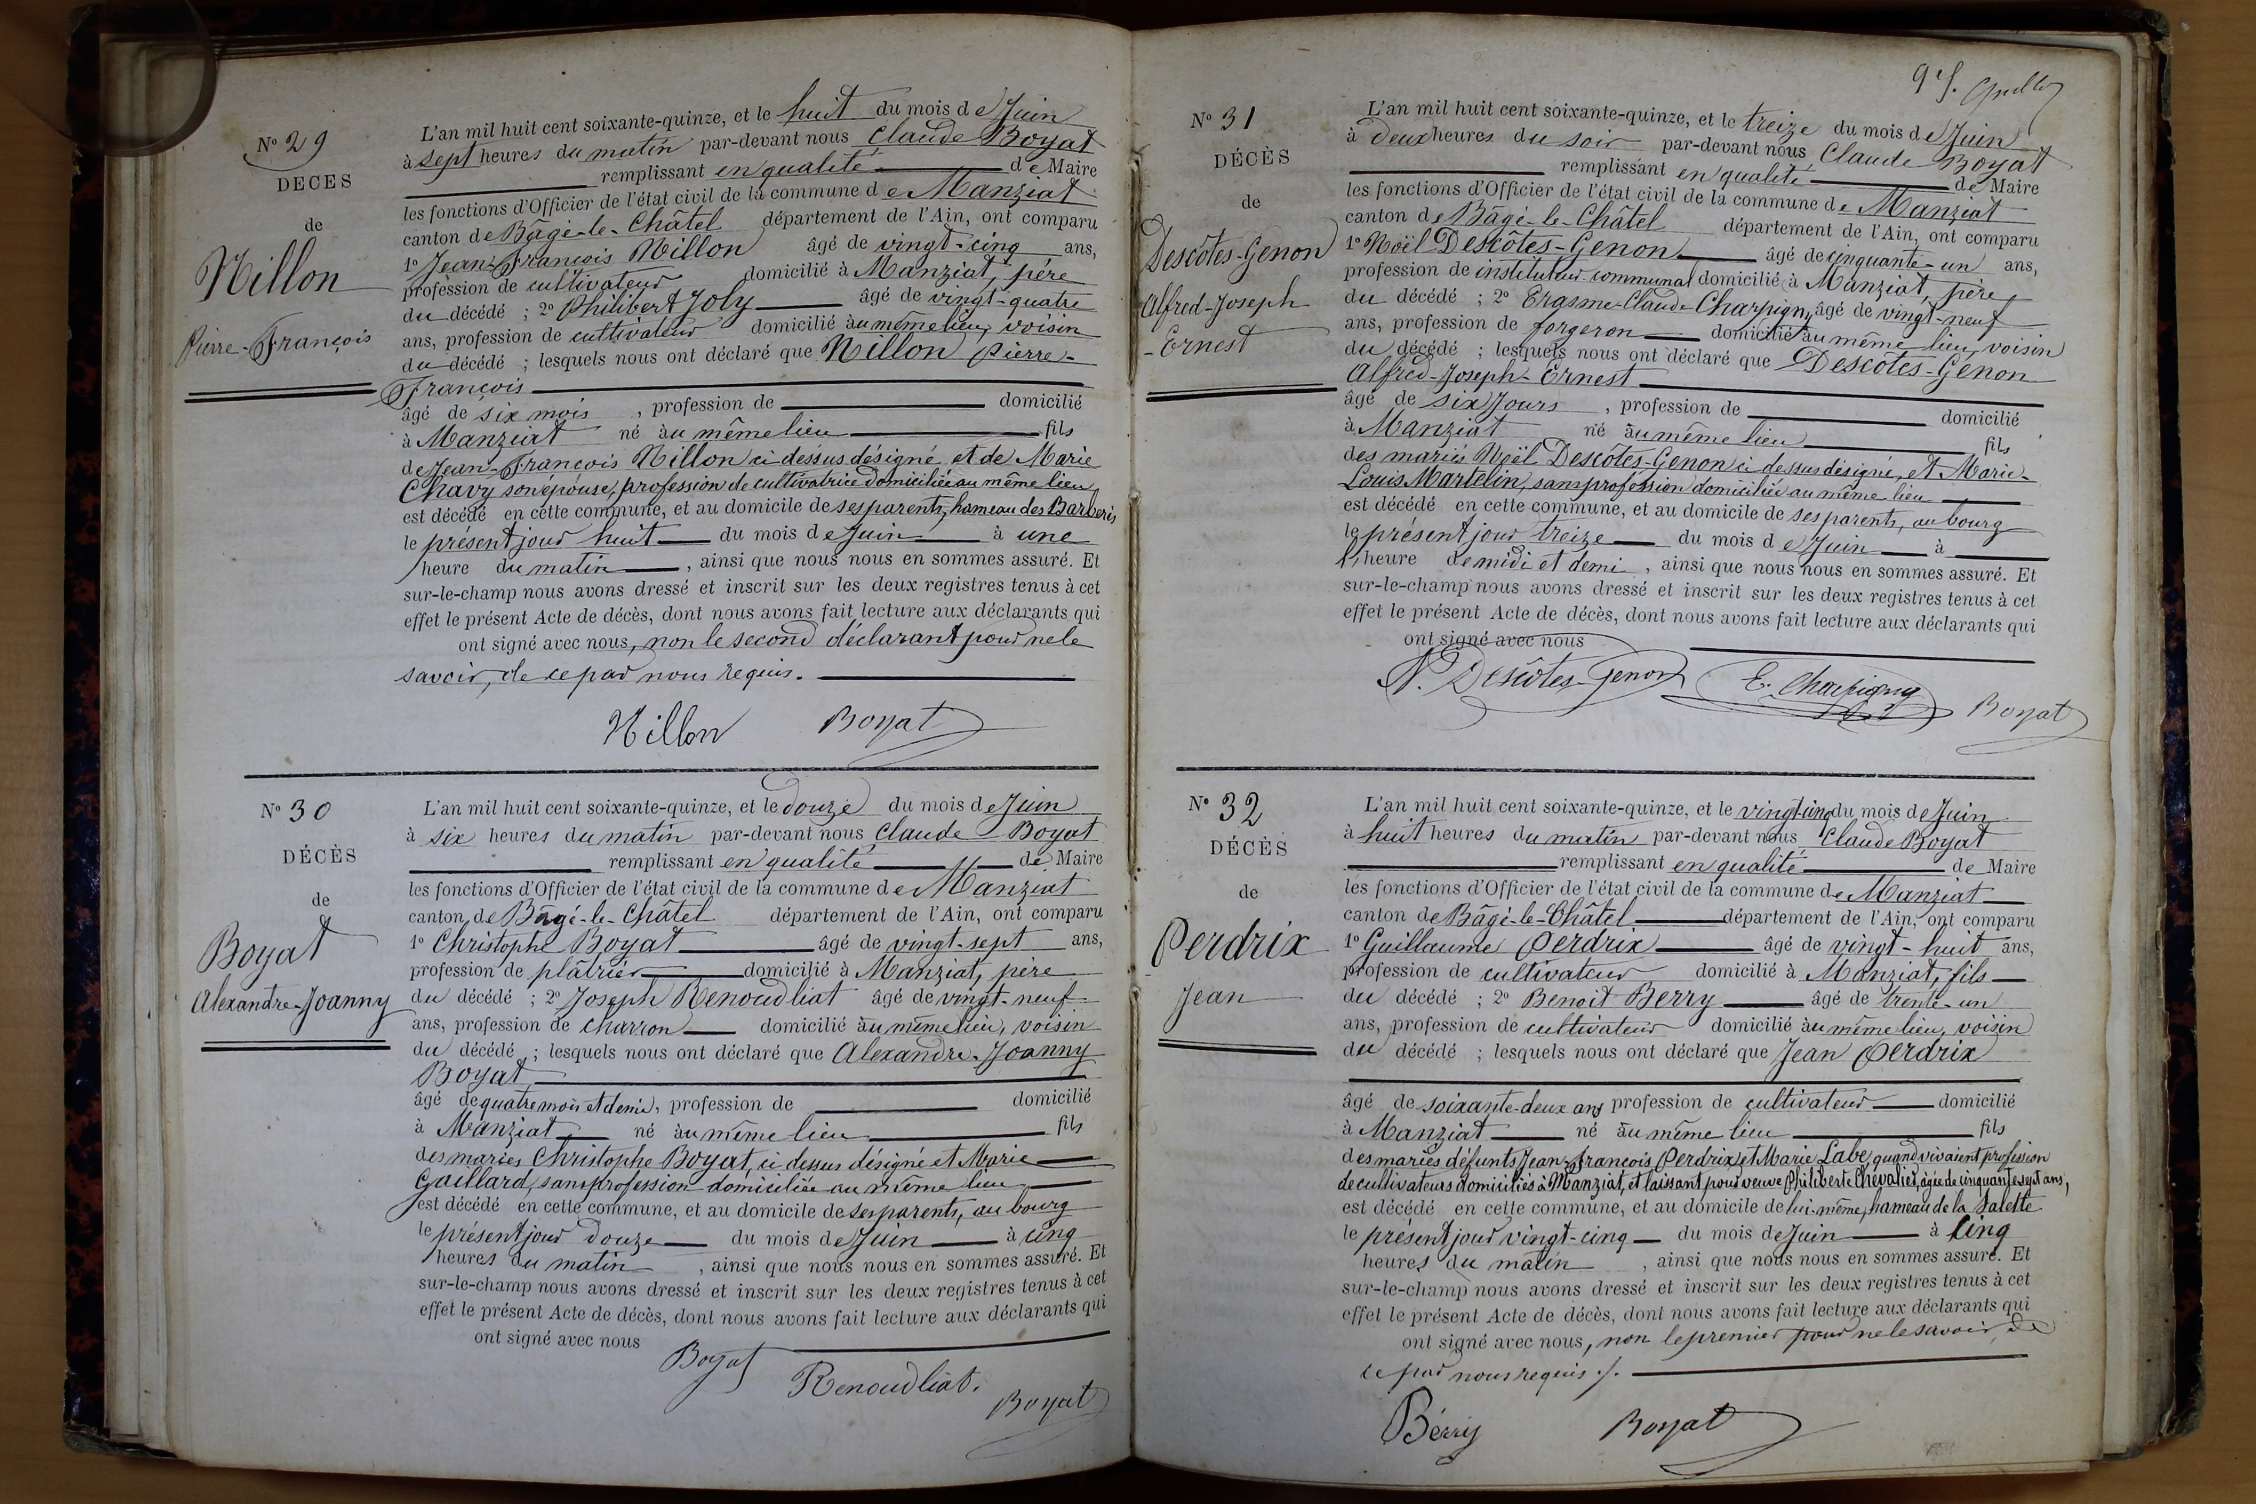 No 29
DÉCÈS
de
Nillon
Pierre-François
L'an mil huit cent soixante-quinze, et le huit du mois de Juin
à sept heures du matin par-devant nous Claude Boyat
remplissant en qualité de Maire
les fonctions d'Officier de l'état civil de la commune de Manziat
canton de Bâgé-le-Châtel département de l'Ain, ont comparu
1o Jean-François Nillon âgé de vingt-cinq ans,
profession de cultivateur domicilié à Manziat, père
du décédé ; 2o Philibert Joly âgé de vingt-quatre
ans, profession de cultivateur domicilié au même lieu, voisin
du décédé ; lesquels nous ont déclaré que Nillon Pierre-
François
âgé de six mois , profession de domicilié
à Manziat né au même lieu fils
de Jean-François Nillon ci dessus désigné et de Marie
Chavy son épouse, profession de cultivatrice domiciliée au même lieu
est décédé en cette commune, et au domicile de ses parents, hameau des Barberis
le présent jour huit du mois de Juin à une
heure du matin , ainsi que nous nous en sommes assuré. Et
sur-le-champ nous avons dressé et inscrit sur les deux registres tenus à cet
effet le présent Acte de décès, dont nous avons fait lecture aux déclarants qui
ont signé avec nous, non le second déclarant pour ne le
savoir, de ce par nous requis.
Nillon Boyat
No 30
DÉCÈS
de
Boyat
Alexandre-Joanny
L'an mil huit cent soixante-quinze, et le douze du mois de Juin
à six heures du matin par-devant nous Claude Boyat
remplissant en qualité de Maire
les fonctions d'Officier de l'état civil de la commune de Manziat
canton de Bâgé-le-Châtel département de l'Ain, ont comparu
1o Christophe Boyat âgé de vingt-sept ans,
profession de plâtrier domicilié à Manziat, père
du décédé ; 2o Joseph Renoudliat âgé de vingt-neuf
ans, profession de charron domicilié au même lieu, voisin
du décédé ; lesquels nous ont déclaré que Alexandre-Joanny
Boyat
âgé de quatre mois et demi, profession de domicilié
à Manziat né au même lieu fils
des mariés Christophe Boyat, ci dessus désigné et Marie
Gaillard, sans profession domiciliée au même lieu
est décédé en cette commune, et au domicile de ses parents, au bourg
le présent jour douze du mois de Juin à cinq
heures du matin , ainsi que nous nous en sommes assuré. Et
sur-le-champ nous avons dressé et inscrit sur les deux registres tenus à cet
effet le présent Acte de décès, dont nous avons fait lecture aux déclarants qui
ont signé avec nous
Boyat
Renoudliat.
Boyat
No 31
DÉCÈS
de
Descôtes-Genon
Alfred-Joseph
-Ernest
L'an mil huit cent soixante-quinze, et le treize du mois de Juin
à deux heures du soir par-devant nous Claude Boyat
remplissant en qualité de Maire
les fonctions d'Officier de l'état civil de la commune de Manziat
canton de Bâgé-le-Châtel département de l'Ain, ont comparu
1o Noël Descôtes-Genon âgé de cinquante-un ans,
profession de instituteur communal domicilié à Manziat, père
du décédé ; 2o Erasme-Claude Charpigny âgé de vingt-neuf
ans, profession de forgeron domicilié au même lieu, voisin
du décédé ; lesquels nous ont déclaré que Descôtes-Genon
Alfred-Joseph-Ernest
âgé de six Jours , profession de domicilié
à Manziat né au même lieu fils
des mariés Noël Descôtes-Genon ci dessus désigné, et Marie-
Louis Martelin, sans profession domiciliée au même lieu
est décédé en cette commune, et au domicile de ses parents, au bourg
le présent jour treize du mois de Juin à
heure de midi et demi , ainsi que nous nous en sommes assuré. Et
sur-le-champ nous avons dressé et inscrit sur les deux registres tenus à cet
effet le présent Acte de décès, dont nous avons fait lecture aux déclarants qui
ont signé avec nous
N. Descôtes-Genon E. Charpigny Boyat
No 32
DÉCÈS
de
Perdrix
Jean
L'an mil huit cent soixante-quinze, et le vingt-cinq du mois de Juin
à huit heures du matin par-devant nous Claude Boyat
remplissant en qualité de Maire
les fonctions d'Officier de l'état civil de la commune de Manziat
canton de Bâgé-le-Châtel département de l'Ain, ont comparu
1o Guillaume Perdrix âgé de vingt-huit ans,
profession de cultivateur domicilié à Manziat, fils
du décédé ; 2o Benoit Berry âgé de trente-un
ans, profession de cultivateur domicilié au même lieu, voisin
du décédé ; lesquels nous ont déclaré que Jean Perdrix
âgé de soixante-deux ans profession de cultivateur domicilié
à Manziat né au même lieu fils
des mariés défunts Jean-françois Perdrix et Marie Labe quand vivaient profession
de cultivateurs domiciliés à Manziat, et laissant pour veuve Philiberte Chevalier, âgée de cinquante sept ans,
est décédé en cette commune, et au domicile de lui-même, hameau de la Salette
le présent jour vingt-cinq du mois de Juin à cinq
heures du matin , ainsi que nous nous en sommes assuré. Et
sur-le-champ nous avons dressé et inscrit sur les deux registres tenus à cet
effet le présent Acte de décès, dont nous avons fait lecture aux déclarants qui
ont signé avec nous, non le premier pour ne le savoir, de
ce par nous requis ./.
Bérry Boyat